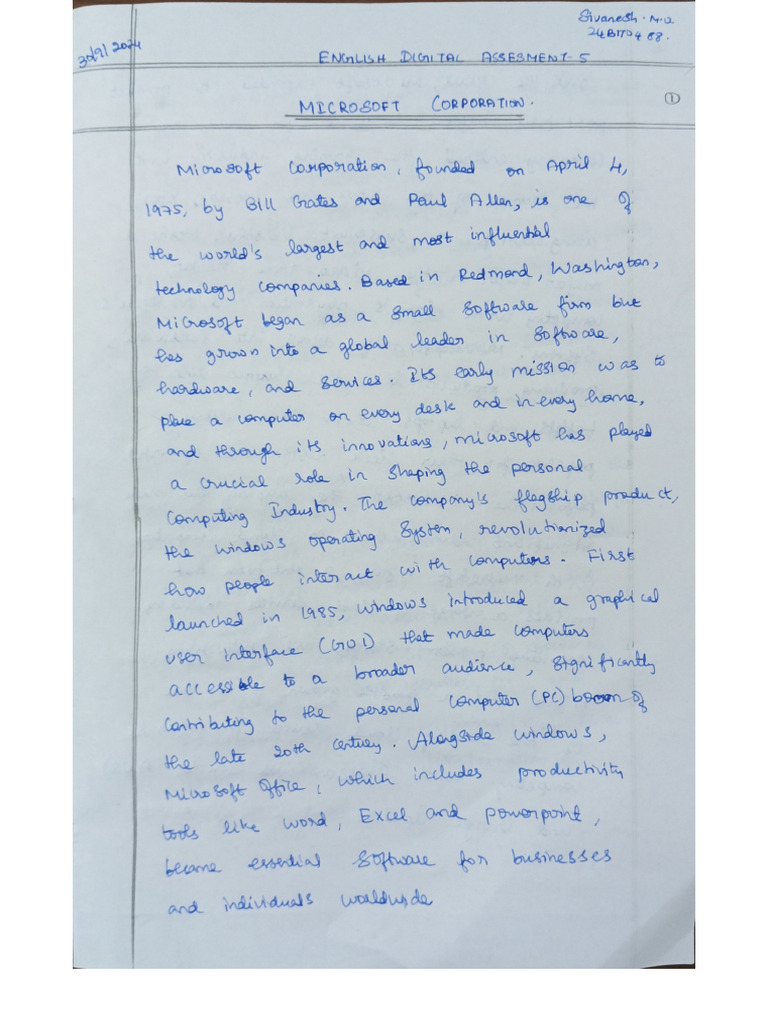 Sivanesh . M.U.
24BIT0488.
30/9/2024
ENGLISH DIGITAL ASSESMENT-5
MICROSOFT CORPORATION.
1
Microsoft Corporation, founded on April 4,
1975, by Bill Gates and Paul Allen, is one of
the world's largest and most influential
technology companies. Based in Redmond, Washington,
Microsoft began as a small software firm but
has grown into a global leader in software,
hardware, and services. Its early mission was to
place a computer on every desk and in every home,
and through its innovations, microsoft has played
a crucial role in shaping the personal
computing Industry. The company's flagship product,
the windows operating System, revolutionized
how people interact with computers. First
launched in 1985, windows introduced a graphical
user interface (GUI) that made computers
accessible to a broader audience, significantly
contributing to the personal computer (PC) boom of
the late 20th century. Alongside windows,
Microsoft Office, which includes productivity
tools like word, Excel and powerpoint,
became essential software for businesses
and individuals worldwide